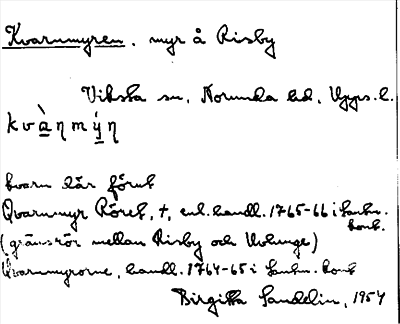 Kvarnmyren. myr å Risby
Viksta sn, Norunda hd, Upps. l.
kvànmýn
kvarn där förut
Qvarnmyr Röret, †, enl. handl. 1765-66 i Lantm.
kont.
(gränsrör mellan Risby och Ullunge)
Qvarnmyrorne, handl. 1764-65 i Lantm. kont
Birgitta Sandelin, 1954